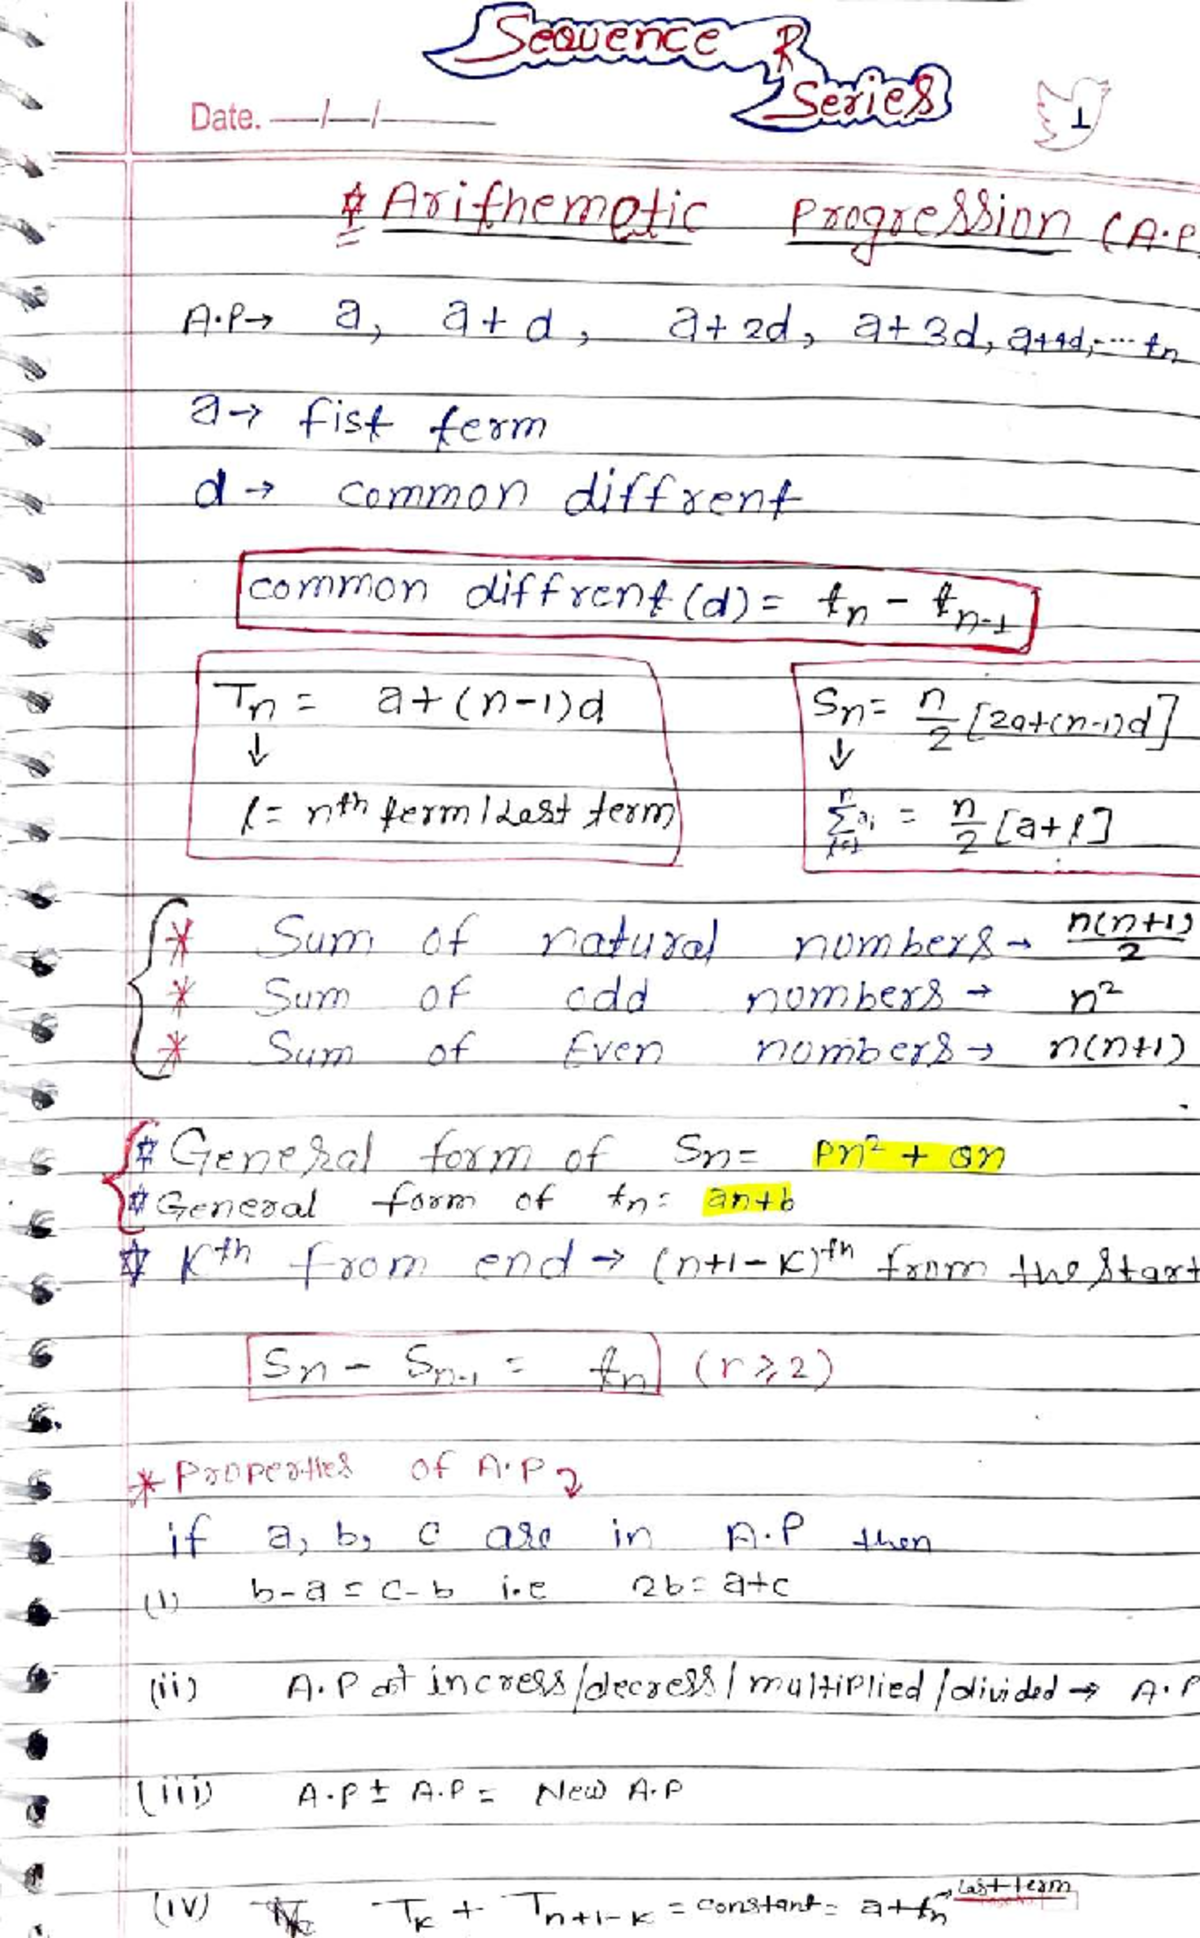 Sequence &
Series
Date. __/__/____
1
# Arithematic Progression (A.P
A.P→ a, a+d, a+2d, a+3d, a+4d,.... tn
a→ fist term
d→ common diffrent
common diffrent (d) = tn - tn-1
Tn = a+(n-1)d
↓
l = nth term / Last term
Sn = n/2 [2a+(n-1)d]
↓
n∑i=1 ai = n/2 [a+l]
* Sum of natural numbers → n(n+1)/2
* Sum of odd numbers → n²
* Sum of Even numbers → n(n+1)
# General form of Sn = Pn² + Qn
# General form of tn = an+b
☆ Kth from end → (n+1-K)th from the start
Sn - Sn-1 = tn (r ≥ 2)
* Properties of A.P
if a, b, c are in A.P then
(i) b-a = c-b i.e 2b = a+c
(ii) A.P incress/decress/multiplied/divided → A.P
(iii) A.P ± A.P = New A.P
(iv) TK + Tn+1-K = constant = a+tn → last term